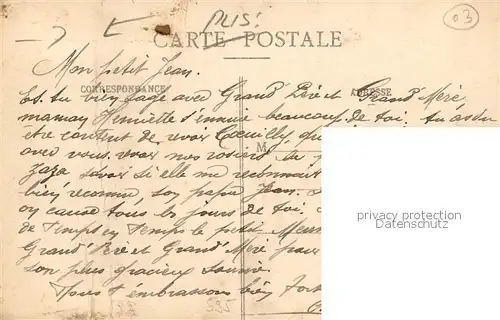 PLIS!
03
CARTE POSTALE
Mon petit Jean.
CORRESPONDANCE
ADRESSE
Es. tu bien sage avec Grand Père et Grand Mère
maman Henriette s'ennuie beaucoup de toi. tu as du
etre content de revoir
M
avec vous. vous nos rosiers de
Zaza savoir si elle me reconnait
bien reconnu son papa Jean.
on cause tous les jours de toi.
de Temps en Temps le petit
Grand Père et Grand Mère pour
son plus gracieux sourire.
Nous t'embrassons bien fort
privacy protection
Datenschutz